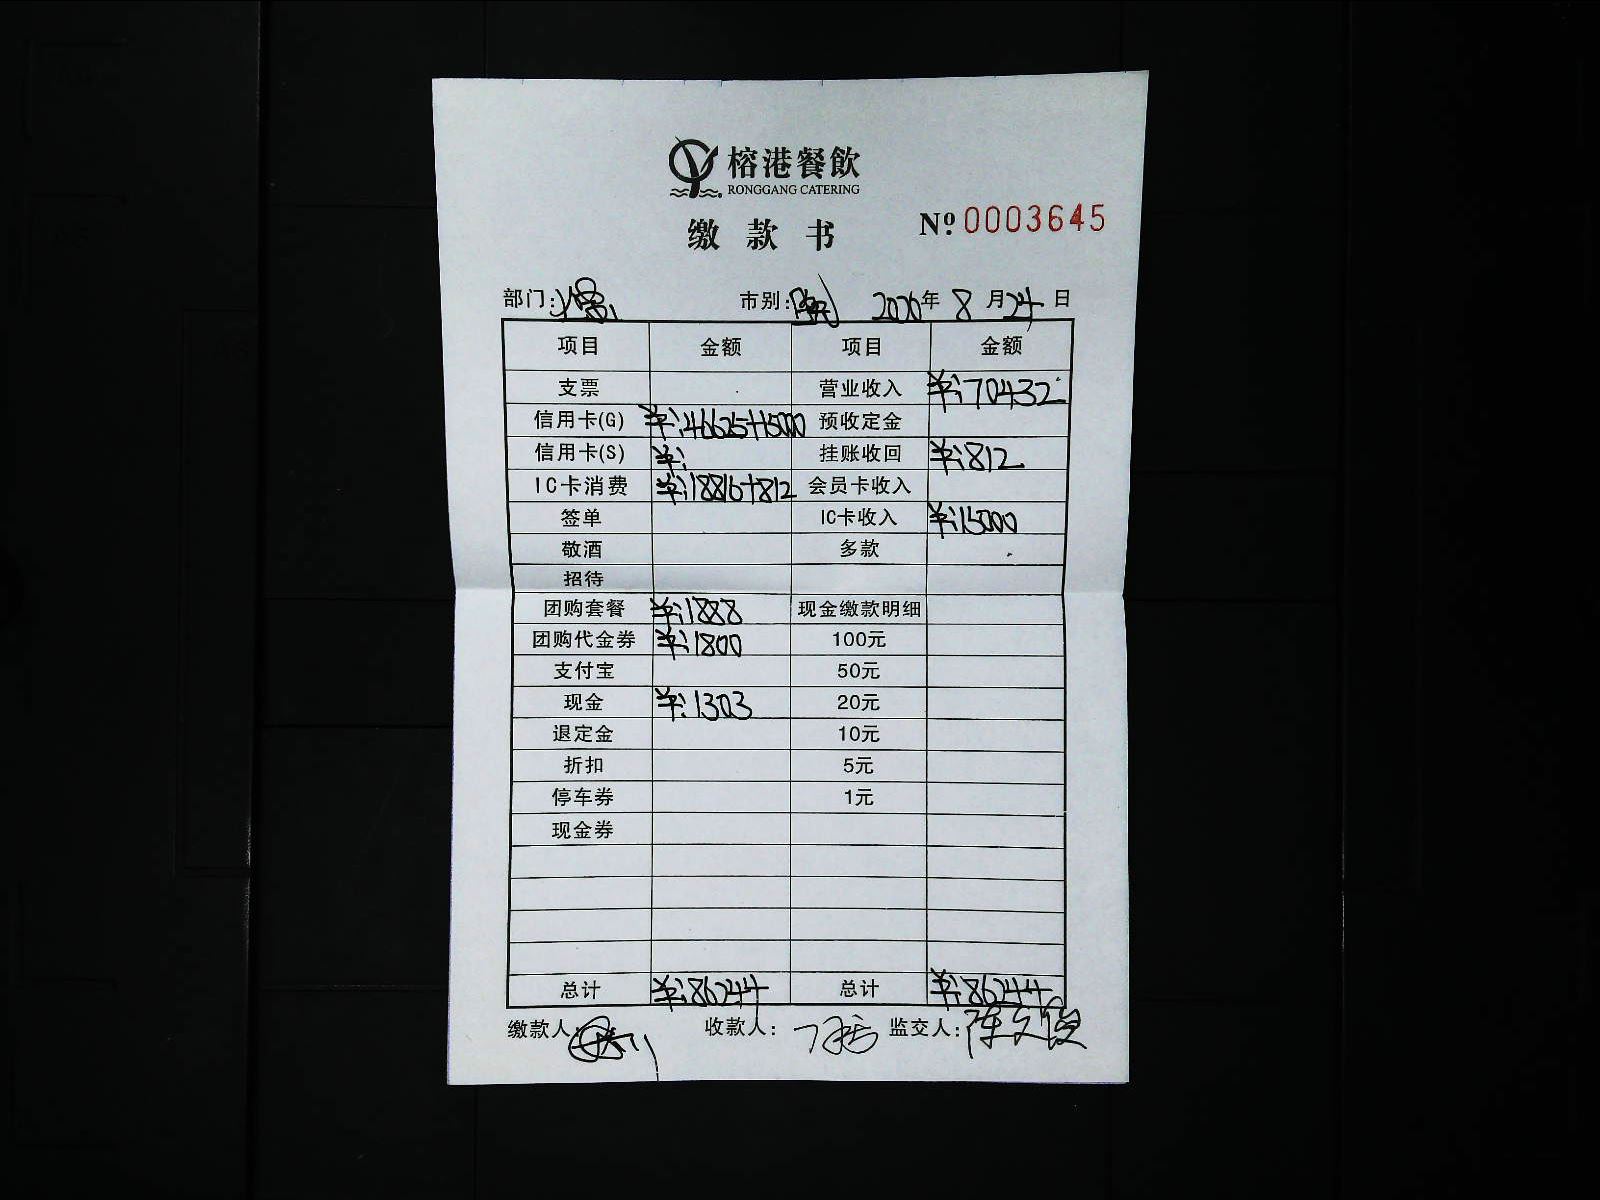 榕港餐飲
RONGGANG CATERING
缴款书 №0003645
部门: 市别: 2020年8月24日
项目 金额 项目 金额
支票 营业收入 ¥:70432
信用卡(G) ¥:46625+15000 预收定金
信用卡(S) ¥: 挂账收回 ¥:812
IC卡消费 ¥:18816+812 会员卡收入
签单 IC卡收入 ¥:15000
敬酒 多款
招待
团购套餐 ¥:1888 现金缴款明细
团购代金券 ¥:1800 100元
支付宝 50元
现金 ¥:1303 20元
退定金 10元
折扣 5元
停车券 1元
现金券
总计 ¥:86244 总计 ¥:86244
缴款人: 收款人: 监交人:陈文俊